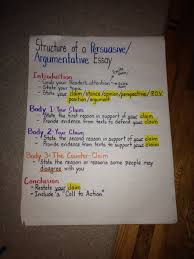 Structure of a Persuasive/
Argumentative Essay
Introduction
- Grab your Reader's attention
- State your topic
- State your claim/stance/opinion/perspective/P.O.V.
position/argument
Body 1: Your Claim
- State the first reason in support of your claim
- Provide evidence from texts to defend your claim
Body 2: Your Claim
- State the second reason in support of your claim
- Provide evidence from texts to support your claim
Body 3: The Counter-Claim
- State the reason or reasons some people may
disagree with you
Conclusion
- Restate your claim
- Include a "Call to Action"